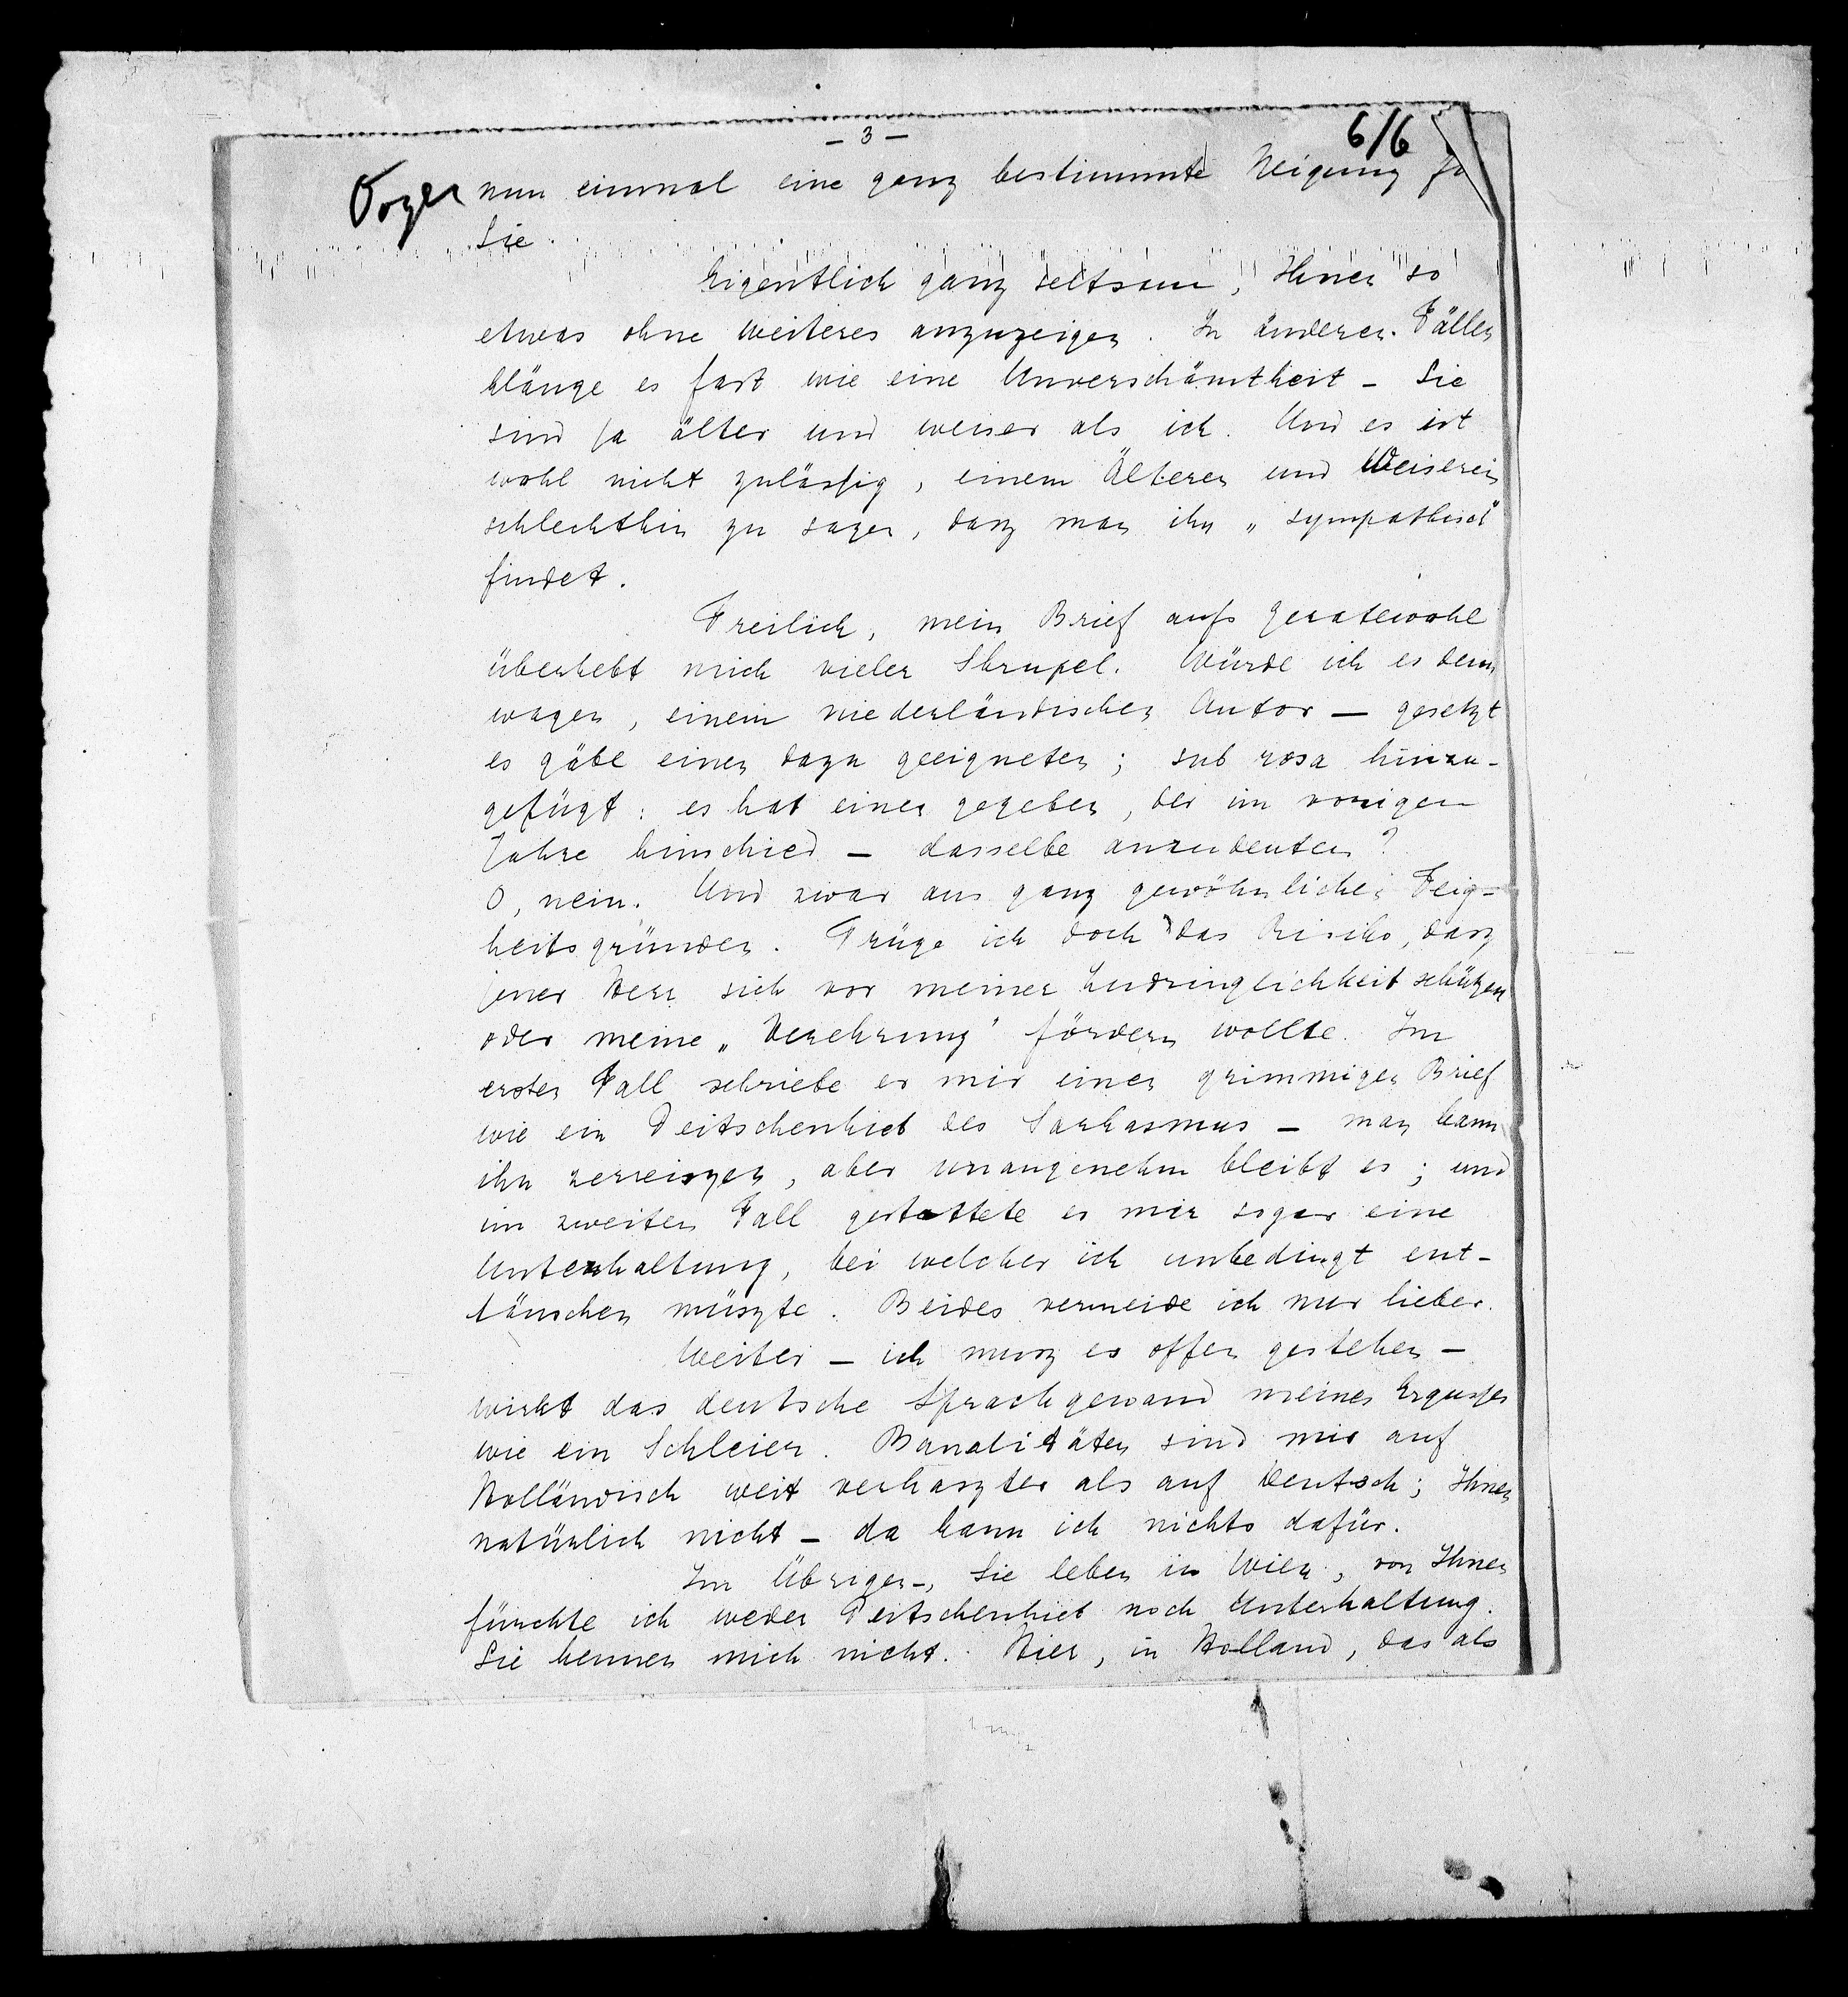 - 3 -
6/6
nun einmal eine ganz bestimmte Neigung
Sie.
Eigentlich ganz seltsam, Ihnen so
etwas ohne weiteres anzuzeigen. In anderen Fällen
klänge es fast wie eine Unverschämtheit - Sie
sind ja älter und weiser als ich. Und es ist
wohl nicht zulässig, einem Älteren und Weiseren
schlechthin zu sagen, dasz man ihn „sympathisch"
findet.
Freilich, mein Brief aufs Geratewohl
überhebt mich vieler Skrupel. Würde ich es denn
wagen, einem niederländischen Autor — gesetzt
es gäbe einen dazu geeigneten; sub rosa hinzu-
gefügt: es hat einen gegeben, der im vorigen
Jahre hinschied — dasselbe anzudeuten?
O, nein. Und zwar aus ganz gewöhnlichen Feig-
heitsgründen. Trüge ich doch das Risiko, dasz
jener Herr sich vor meiner Zudringlichkeit schützen
oder meine „Verehrung" fördern wollte. Im
ersten Fall schriebe er mir einen grimmigen Brief
wie ein Peitschenhieb des Sarkasmus — man kann
ihn zerreiszen, aber unangenehm bleibt es; und
im zweiten Fall gestattete er mir sogar eine
Unterhaltung, bei welcher ich unbedingt ent-
täuschen müszte. Beides vermeide ich nur lieber.
Weiter — ich musz es offen gestehen —
wirkt das deutsche Sprachgewand meines Ergusses
wie ein Schleier. Banalitäten sind mir auf
Holländisch weit verhaszter als auf Deutsch; Ihnen
natürlich nicht — da kann ich nichts dafür.
Im Übrigen -, Sie leben in Wien, von Ihnen
fürchte ich weder Peitschenhieb noch Unterhaltung.
Sie kennen mich nicht. Hier, in Holland, das als